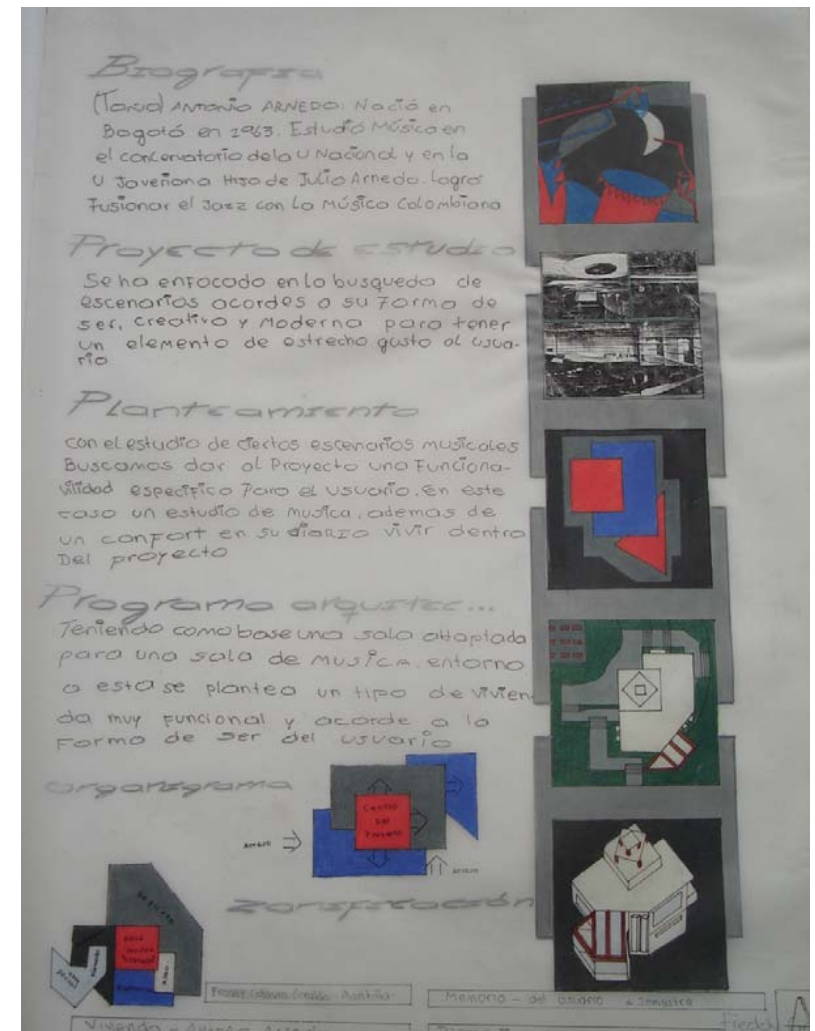 Biografia
(Toño) ANTONIO ARNEDO: Nació en
Bogotá en 1963. Estudió Música en
el conservatorio de la U Nacional y en la
U Javeriana Hijo de Julio Arnedo. Logro
Fusionar el Jazz con la Música Colombiana
Proyecto de estudio
Se ha enfocado en la busqueda de
escenarios acordes a su forma de
ser, creativa y Moderna para tener
un elemento de estrecho gusto al usua-
rio
Planteamiento
con el estudio de ciertos escenarios musicales
Buscamos dar al Proyecto una Funciona-
vilidad especifica Para el usuario. en este
caso un estudio de musica, ademas de
un confort en su diario vivir dentro
Del proyecto
Programa arquitec...
Teniendo como base una sala adaptada
para una sala de musica, entorno
a esta se plantea un tipo de vivien-
da muy funcional y acorde a la
Forma de ser del usuario
organigrama
Centro
Del
Acceso
Acceso
zonificación
Zona
Social
Memoria - del usuario
Semestre
Vivienda - Antonio Arnedo